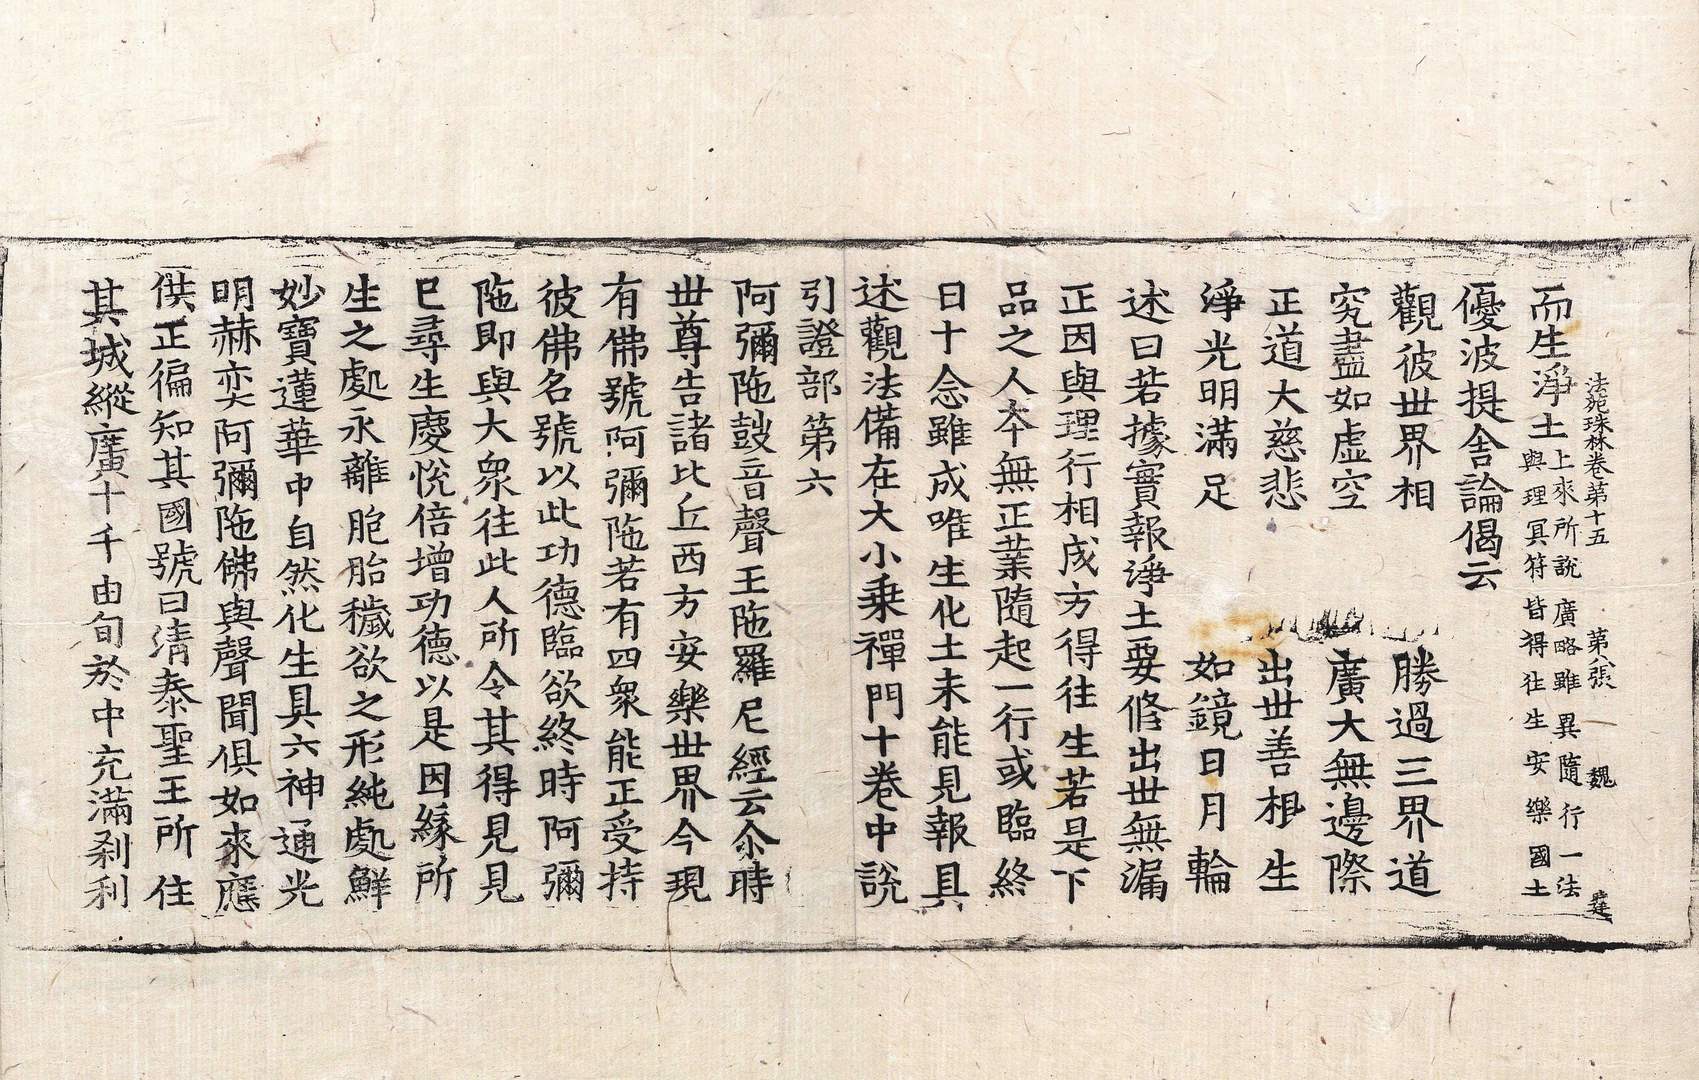 法苑珠林卷第十五　第八張　魏
而生淨土上來所說廣略雖異隨行一法
與理冥符皆得往生安樂國土
優波提舍論偈云
觀彼世界相　勝過三界道
究盡如虛空　廣大無邊際
正道大慈悲　出世善根生
淨光明滿足　如鏡日月輪
述曰若據實報淨土要修出世無漏
正因與理行相成方得往生若是下
品之人本無正業隨起一行或臨終
日十念雖成唯生化土未能見報具
述觀法備在大小乘禪門十卷中說
引證部第六
阿彌陁鼓音聲王陁羅尼經云尒時
世尊告諸比丘西方安樂世界今現
有佛號阿彌陁若有四衆能正受持
彼佛名號以此功德臨欲終時阿彌
陁即與大衆往此人所令其得見見
已尋生慶悅倍增功德以是因緣所
生之處永離胞胎穢欲之形純處鮮
妙寶蓮華中自然化生具六神通光
明赫奕阿彌陁佛與聲聞俱如來應
供正徧知其國號曰清泰聖王所住
其城縱廣十千由旬於中充滿刹利